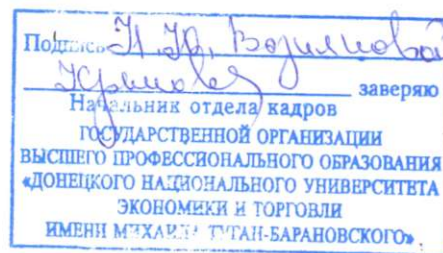 Подпись Н.Ю. Возияновой
заверяю
Начальник отдела кадров
ГОСУДАРСТВЕННОЙ ОРГАНИЗАЦИИ
ВЫСШЕГО ПРОФЕССИОНАЛЬНОГО ОБРАЗОВАНИЯ
«ДОНЕЦКОГО НАЦИОНАЛЬНОГО УНИВЕРСИТЕТА
ЭКОНОМИКИ И ТОРГОВЛИ
ИМЕНИ МИХАИЛА ТУГАН-БАРАНОВСКОГО»